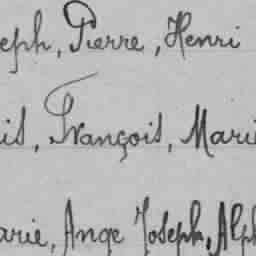 eph, Pierre, Henri
is, François, Mari
arie, Ange Joseph, Alph